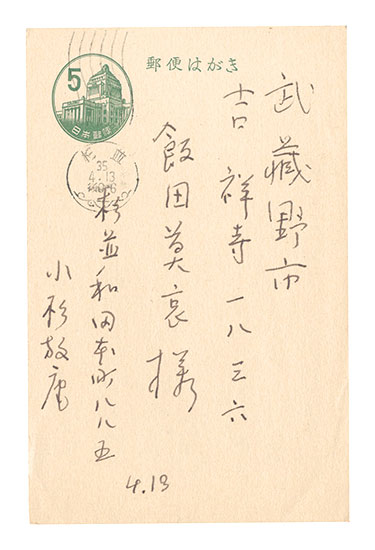 郵便はがき
5
日本郵便
35
4.13
武藏野市
吉祥寺一八三六
飯田莫哀様
杉並和田本町八八五
小杉放庵
4.13